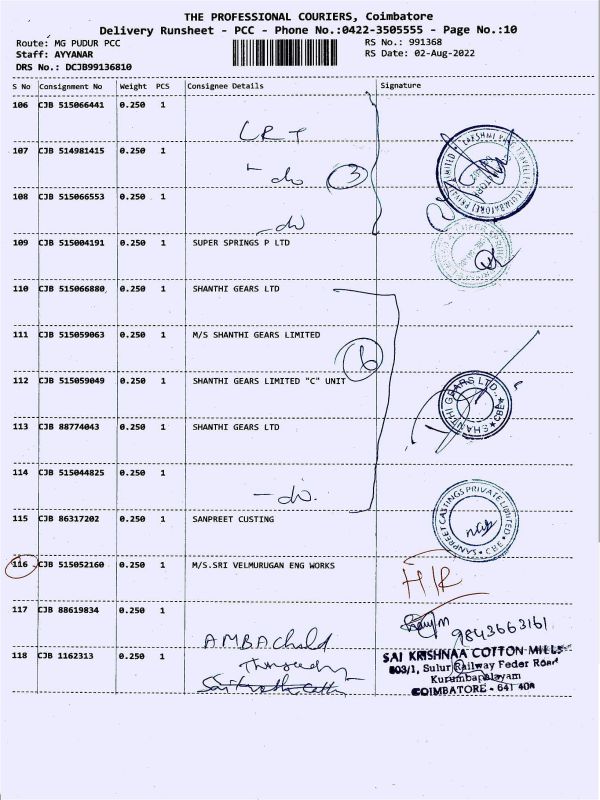 THE PROFESSIONAL COURIERS, Coimbatore
Delivery Runsheet - PCC - Phone No.:0422-3505555 - Page No.:10
Route: MG PUDUR PCC RS No.: 991368
Staff: AYYANAR RS Date: 02-Aug-2022
DRS No.: DCJB99136810
S No Consignment No Weight PCS Consignee Details Signature
106 CJB 515066441 0.250 1
LRT
107 CJB 514981415 0.250 1
- do 3
108 CJB 515066553 0.250 1
- do
109 CJB 515004191 0.250 1 SUPER SPRINGS P LTD
110 CJB 515066880 0.250 1 SHANTHI GEARS LTD
111 CJB 515059063 0.250 1 M/S SHANTHI GEARS LIMITED
112 CJB 515059049 0.250 1 SHANTHI GEARS LIMITED "C" UNIT
SHANTHI GEARS LTD. ★ CBE ★
113 CJB 88774043 0.250 1 SHANTHI GEARS LTD
114 CJB 515044825 0.250 1
- do.
115 CJB 86317202 0.250 1 SANPREET CUSTING
SANPREET CASTINGS PRIVATE LIMITED ★ CBE ★
116 CJB 515052160 0.250 1 M/S.SRI VELMURUGAN ENG WORKS
H/R
117 CJB 88619834 0.250 1
AMBA 9843663161
118 CJB 1162313 0.250 1
SAI KRISHNAA COTTON MILLS
803/1, Sulur Railway Feder Road
Kurumbapalayam
COIMBATORE - 641 40